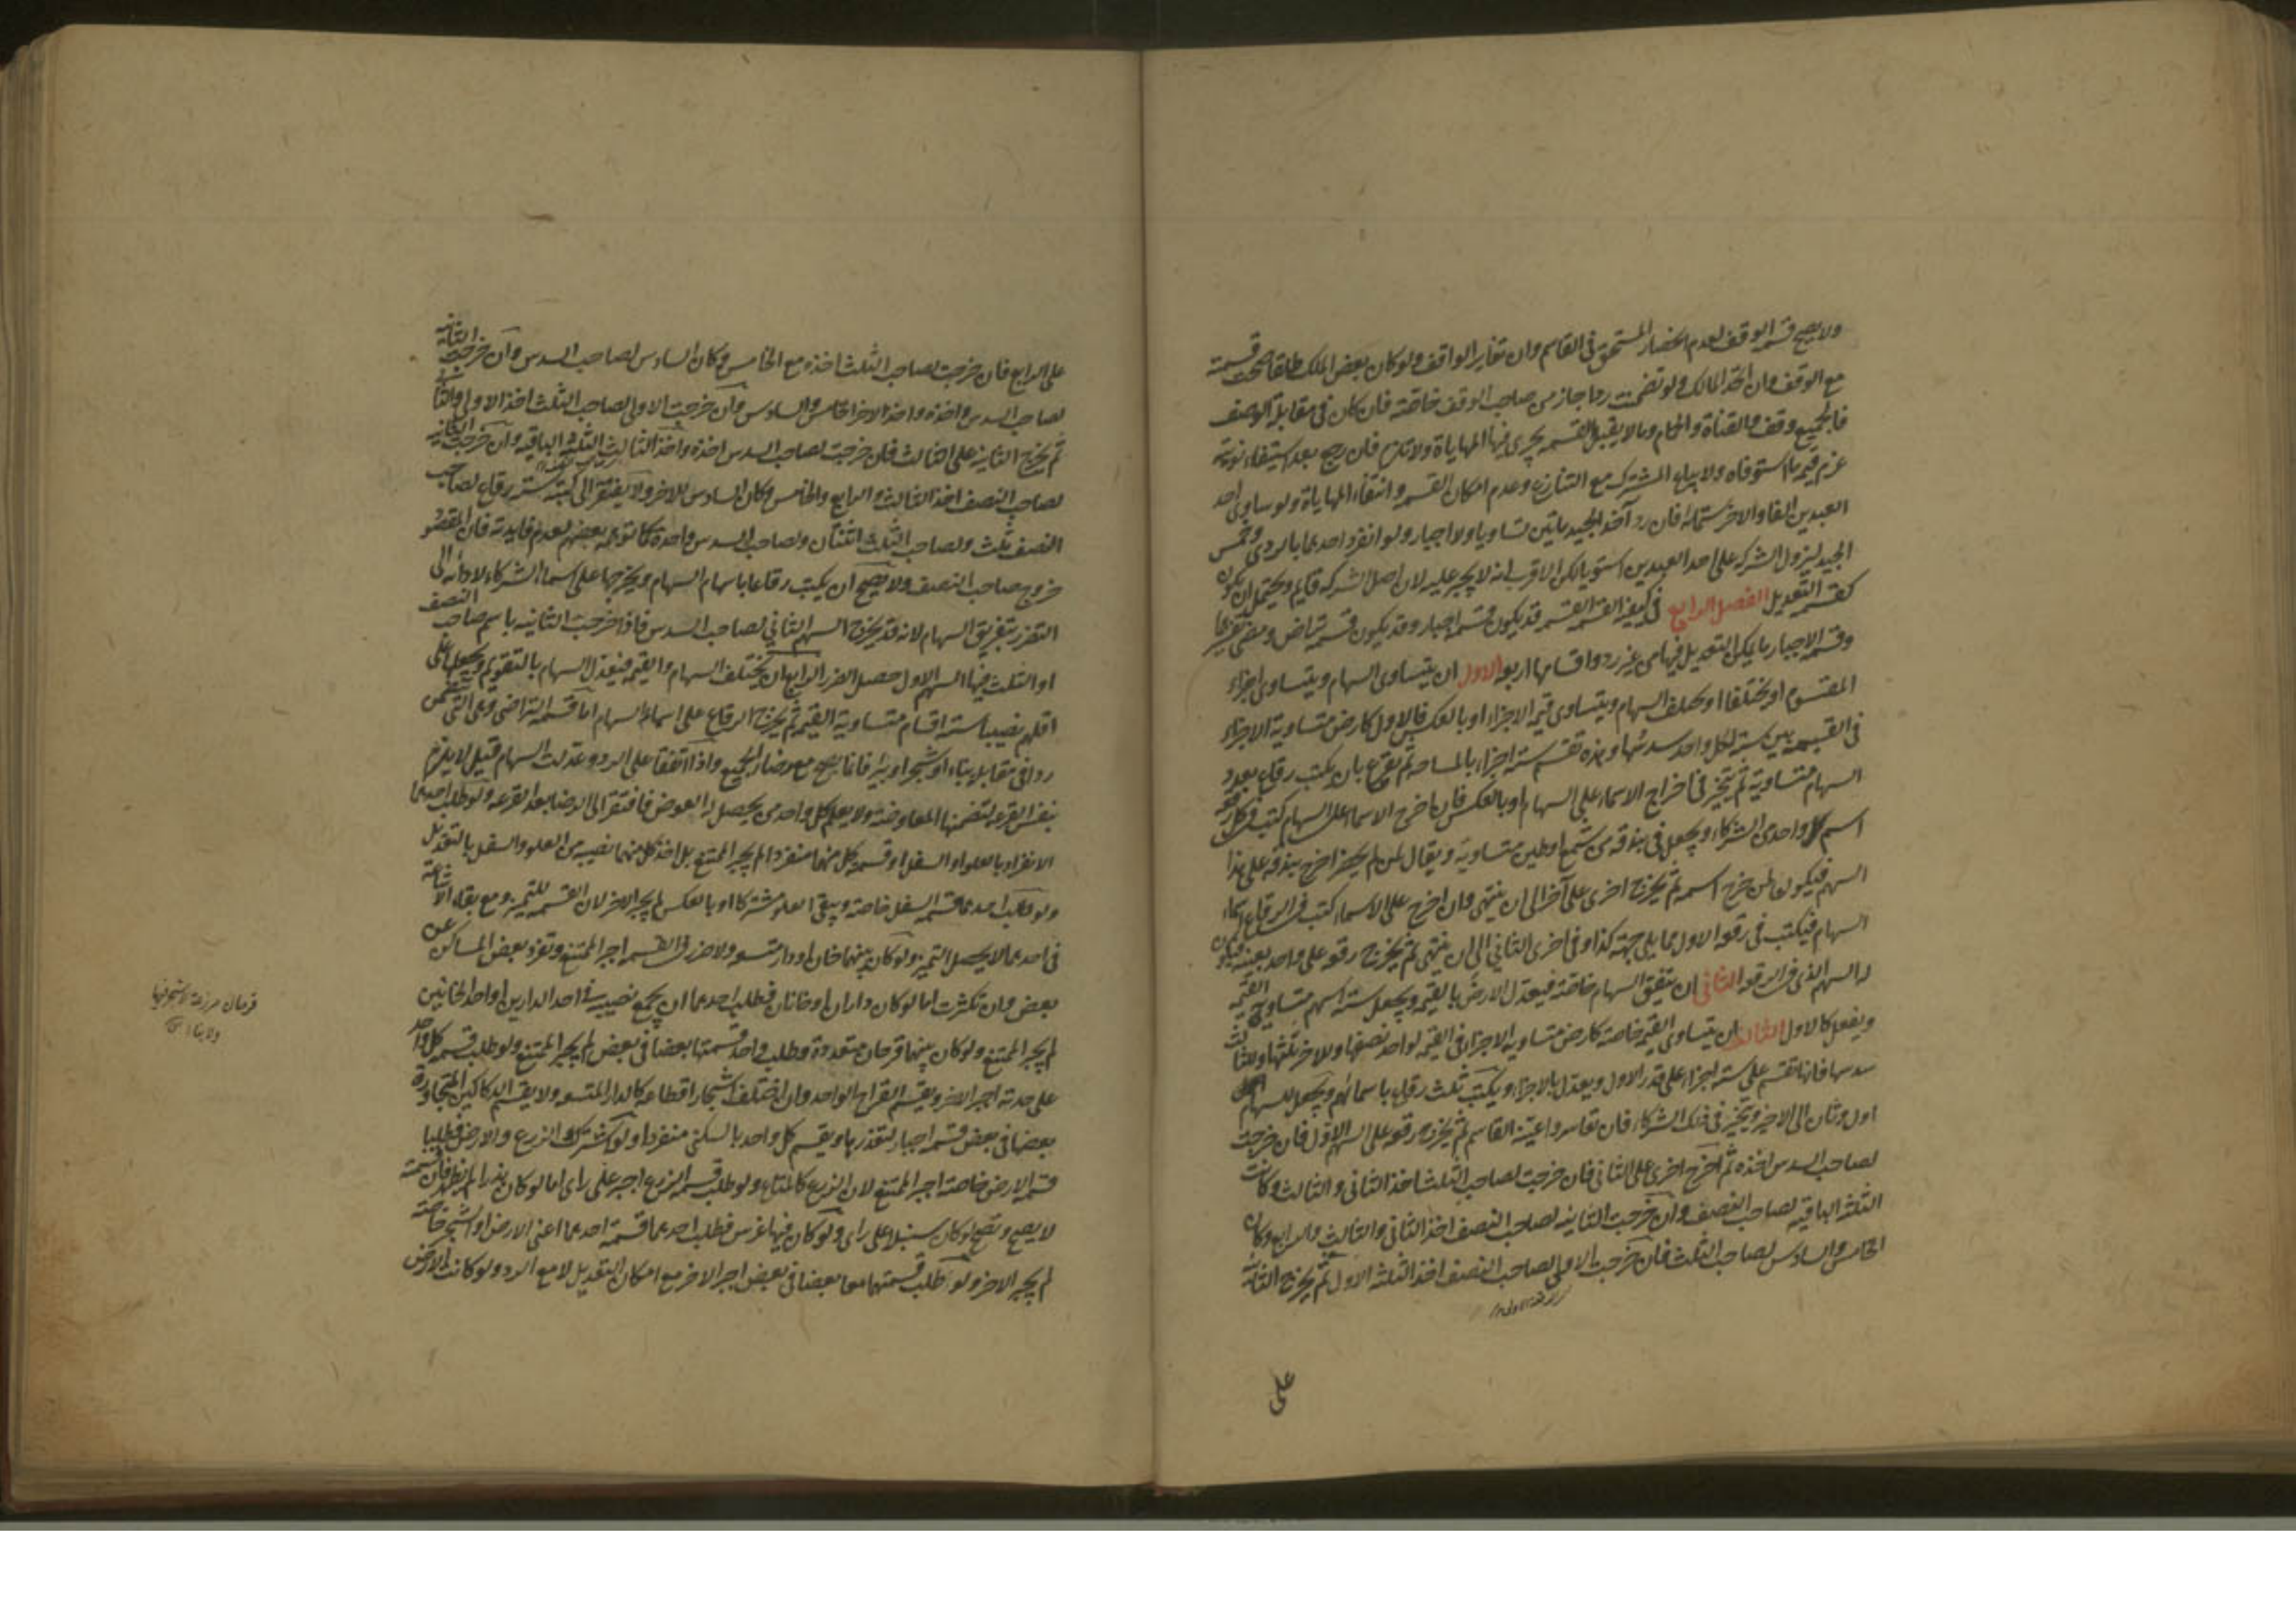 ولا يصح قسمة الوقف لعدم انحصار المستحق فى القاسم وان تغاير الواقف ولو كان بعض الملك طلقا صحت قسمته
مع الوقف وان اتحد المالك ولو تضمنت ردا جاز من صاحب الوقف خاصة فان كان فى مقابلة الوصف
فالجميع وقف والقناة والحمام وما لا يقبل القسمة يجرى فيها المهاياة ولا تلزم فان رجع بعد استيفاء نوبته
غرم قيمة ما استوفاه ولا يباع المشترك مع التنازع وعدم امكان القسمة وانتفاء المهاياة ولو ساوى احد
العبدين الفا والاخر ستمائة فان رد آخذ الجيد مائتين تساويا ولا اجبار ولو انفرد احدهما بالردى وخمس
الجيد ليزول الشركة على احد العبدين استويا لكن الاقرب انه لا يجبر عليه لان اصل الشركة قايم ويحتمل ان يكون
كقسمة التعديل الفصل الرابع فى كيفية القسمة القسمة قد يكون قسمة اجبار وقد يكون قسمة تراض ومضى تفسيرهما
وقسمة الاجبار ما يمكن التعديل فيها من غير رد واقسامها اربعة الاول ان يتساوى السهام ويتساوى اجزاء
المقسوم او يختلفا او يختلف السهام ويتساوى قيمة الاجزاء او بالعكس فالاول كارض متساوية الاجزاء
فى القيمة بين ستة لكل واحد سدسها وهذه تقسم ستة اجزاء بالمساحة ثم يقرع بان يكتب رقاع بعدد
السهام متساوية ثم يتخير فى اخراج الاسماء على السهام او بالعكس فان اخرج الاسماء على السهام كتب فى كل رقعة
اسم كل واحد من الشركاء ويجعل فى بندقة من شمع او طين متساوية ويقال لمن لم يحضر اخرج بندقة على هذا
السهم فيكون لمن خرج اسمه ثم يخرج اخرى على آخر الى ان ينتهى وان اخرج على الاسماء كتب فى الرقاع اسماء
السهام فيكتب فى رقعة الاول مما يلى جهة كذا وفى اخرى الثانى الى ان ينتهى ثم يخرج رقعة على واحد بعينه فيكون
له السهم الذى فى الرقعة الثانى ان يتفق السهام خاصة فيعدل الارض بالقيمة ويجعل ستة اسهم متساوية القيمة
ويفعل كالاول الثالث ان يتساوى القيمة خاصة كارض متساوية الاجزاء فى القيمة لواحد نصفها ولاخر ثلثها ولثالث
سدسها فانها تقسم على ستة اجزاء على قدر الاول ويعدل بالاجزاء ويكتب ثلث رقاع باسمائهم ويجعل للسهم
اول وثان الى الاخير ويتخير فى ذلك الشركاء فان تعاسروا عينه القاسم ثم يخرج رقعة على السهم الاول فان خرجت
لصاحب السدس اخذه ثم اخرج اخرى على الثانى فان خرجت لصاحب الثلث اخذ الثانى والثالث وكانت
الثلثة الباقية لصاحب النصف وان خرجت الثانية لصاحب النصف اخذ الثانى والثالث والرابع وكان
الخامس والسادس لصاحب الثلث فان خرجت الاولى لصاحب النصف اخذ الثلثة الاول ثم يخرج الثانية
على
على الرابع فان خرجت لصاحب الثلث اخذه مع الخامس وكان السادس لصاحب السدس وان خرجت الثانية
لصاحب السدس اخذه واخذ الاخر الخامس والسادس وان خرجت الاولى لصاحب الثلث اخذ الاولى والثانى
ثم يخرج الثانية على الثالث فان خرجت لصاحب السدس اخذه واخذ الثالث الثلثة الباقية وان خرجت الثانية
لصاحب النصف اخذ الثالث والرابع والخامس وكان السادس للاخر ولا يفتقر الى كتبة ستة رقاع لصاحب
النصف ثلث ولصاحب الثلث اثنتان ولصاحب السدس واحدة كما توهمه بعضهم لعدم فايدته فان المقصود
خروج صاحب النصف ولا يصح ان يكتب رقاعا باسماء السهام ويخرجها على اسماء الشركاء لادائه الى
التضرر بتفريق السهام لانه قد يخرج السهم الثانى لصاحب السدس فاذا خرجت الثانية باسم صاحب النصف
او الثلث فيها السهم الاول حصل الضرر الرابع ان يختلف السهام والقيمة فيعدل السهام بالتقويم ويجعلها على
اقلهم نصيبا ستة اقسام متساوية القيمة ثم يخرج الرقاع على اسماء السهام اما قسمة التراضى وهى التى تتضمن
ردا فى مقابل بناء او شجر او بئر فانما يصح مع رضا الجميع واذا اتفقا على الرد وعدلت السهام قيل لا يلزم
بنفس القرعة لتضمنها المعاوضة ولا يعلم كل واحد من يحصل له العوض فافتقر الى الرضا بعد القرعة ولو طلب احدهما
الانفراد بالعلو او السفل او قسمة كل منهما منفردا لم يجبر الممتنع بل اخذ كل منهما نصيبه من العلو والسفل بالتعديل
ولو طلب احدهما قسمة السفل خاصة ويبقى العلو مشتركا او بالعكس لم يجبر الاخر لان القسمة للتميز ومع بقاء الاشاعة
فى احدهما لا يحصل التميز ولو كان بينهما خان او دار متسعة ولا ضرر فى القسمة اجبر الممتنع وتفرد بعض المساكن عن
بعض وان تكثرت اما لو كان داران او خانان فطلب احدهما ان يجمع نصيبه فى احد الدارين او احد الخانين
لم يجبر الممتنع ولو كان بينهما قرحان متعددة وطلب واحد قسمتها بعضا فى بعض لم يجبر الممتنع ولو طلب قسمة كل واحد
على حدته اجبر الاخر ويقسم القراح الواحد وان اختلف اشجار اقطاعه كالدار المتسعة ولا يقسم الدكاكين المتجاورة
بعضها فى بعض قسمة اجبار لتعددها ويقسم كل واحد بالسكنى منفردا ولو اشترك الزرع والارض فطلبا
قسمة الارض خاصة اجبر الممتنع لان الزرع كالمتاع ولو طلب قسمة الزرع اجبر على راى اما لو كان بذرا لم يظهر فان قسمته
لا يصح وتصح لو كان سنبلا على راى ولو كان فيها غرس فطلب احدهما قسمة احدهما اعنى الارض او الشجر خاصة
لم يجبر الاخر ولو طلب قسمتهما معا بعضا فى بعض اجبر الاخر مع امكان التعديل لا مع الرد ولو كانت الارض